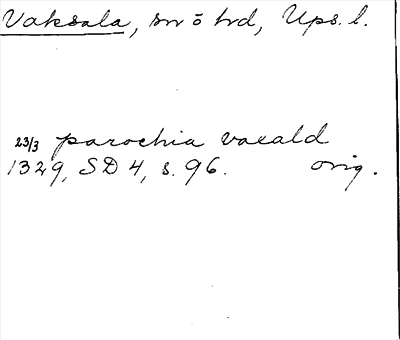 Vaksala, sn o hd, Ups. l.
23/3 parochia vaxald
1329, SD 4, s. 96. orig.